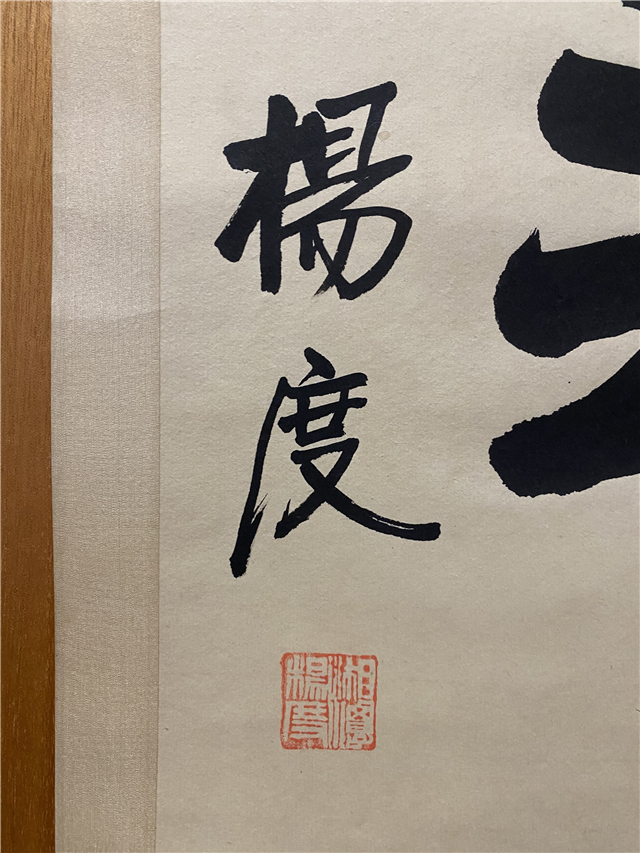 楊度
湘潭
楊度